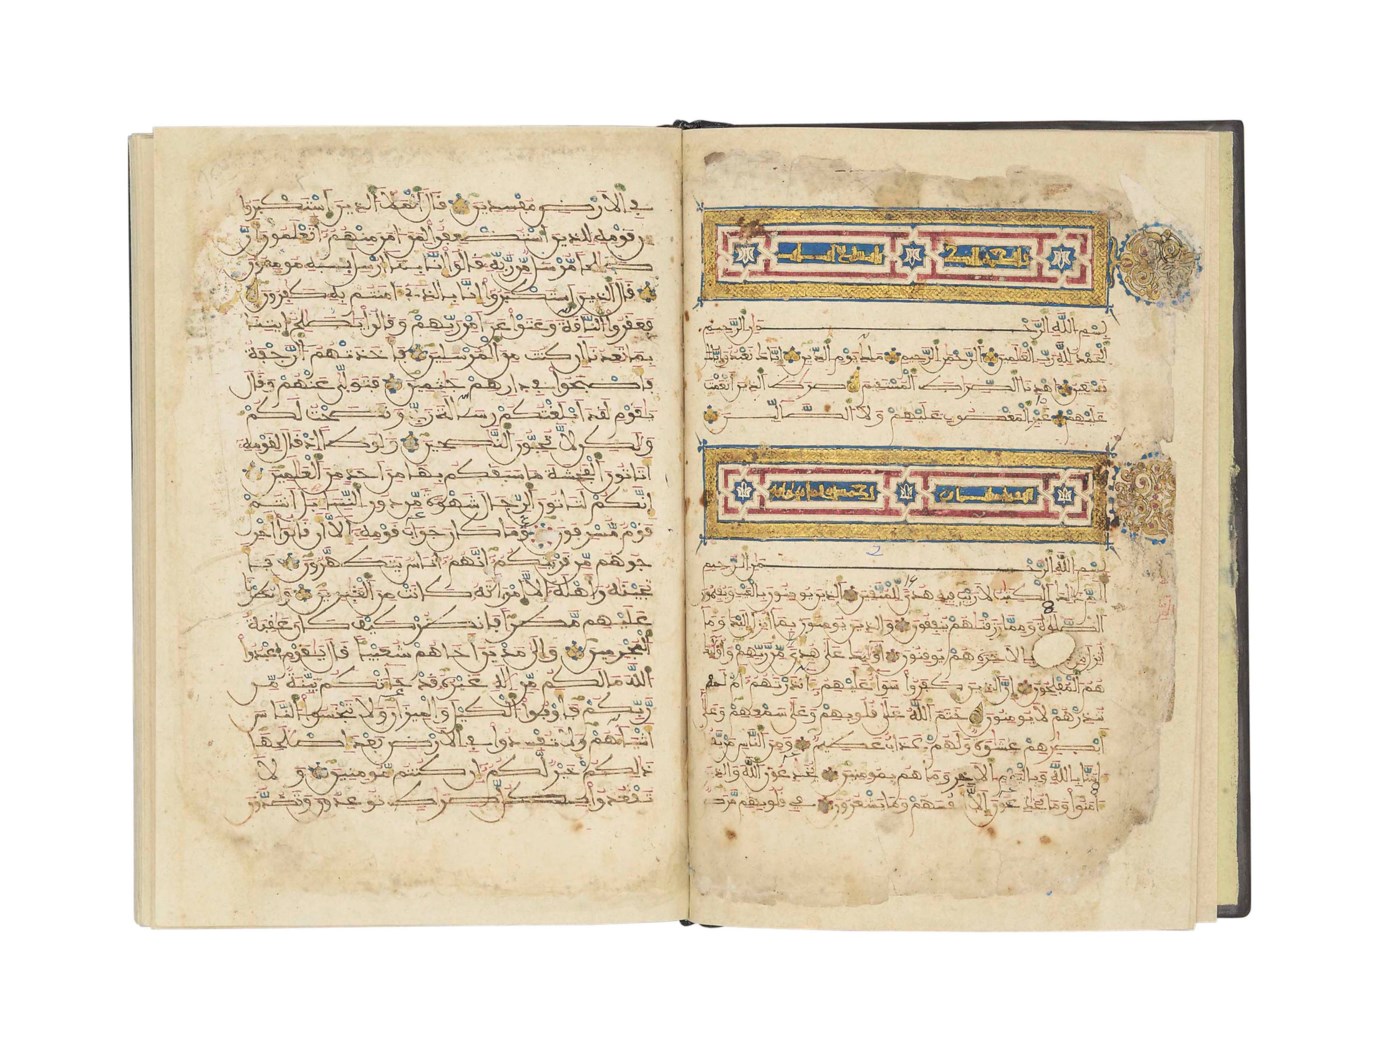 بسم الله الرحمن الرحيم
الحمد لله رب العلمين الرحمن الرحيم ملك يوم الدين إياك نعبد وإياك
نستعين اهدنا الصراط المستقيم صراط الذين أنعمت
عليهم غير المغضوب عليهم ولا الضالين
2
بسم الله الرحمن الرحيم
الم ذلك الكتب لا ريب فيه هدى للمتقين الذين يومنون بالغيب ويقيمون
الصلوة ومما رزقنهم ينفقون والذين يومنون بما أنزل إليك وما
أنزل من وبالاخرة هم يوقنون أوليك على هدى من ربهم وأوليك
هم المفلحون إن الذين كفروا سواء عليهم ءانذرتهم أم لم
تنذرهم لا يومنون ختم الله على قلوبهم وعلى سمعهم وعلى
أبصرهم غشوة ولهم عذاب عظيم ومن الناس من يقول
ءامنا بالله وباليوم الاخر وما هم بمومنين يخدعون الله والذين
ءامنوا وما يخدعون إلا أنفسهم وما يشعرون في قلوبهم مرض
في الارض مفسدين قال الملأ الذين استكبروا
من قومه للذين استضعفوا لمن ءامن منهم أتعلمون أن
صلحا مرسل من ربه قالوا إنا بما أرسل به مومنون
قال الذين استكبروا إنا بالذي ءامنتم به كفرون
فعقروا الناقة وعتوا عن أمر ربهم وقالوا يصلح ايتنا
بما تعدنا إن كنت من المرسلين فأخذتهم الرجفة
فأصبحوا في دارهم جثمين فتولى عنهم وقال
يقوم لقد أبلغتكم رسالة ربي ونصحت لكم
ولكن لا تحبون النصحين ولوطا إذ قال لقومه
أتاتون الفحشة ما سبقكم بها من أحد من العلمين
إنكم لتاتون الرجال شهوة من دون النساء بل أنتم
قوم مسرفون وما كان جواب قومه إلا أن قالوا أخر
جوهم من قريتكم إنهم أناس يتطهرون فأ
نجينه وأهله إلا امرأته كانت من الغبرين وأمطرنا
عليهم مطرا فانظر كيف كان عقبة
المجرمين وإلى مدين أخاهم شعيبا قال يقوم اعبدوا
الله ما لكم من إله غيره قد جاءتكم بينة من
ربكم فأوفوا الكيل والميزان ولا تبخسوا الناس
أشياءهم ولا تفسدوا في الارض بعد إصلحها
ذلكم خير لكم إن كنتم مومنين ولا
تقعدوا بكل صراط توعدون وتصدون